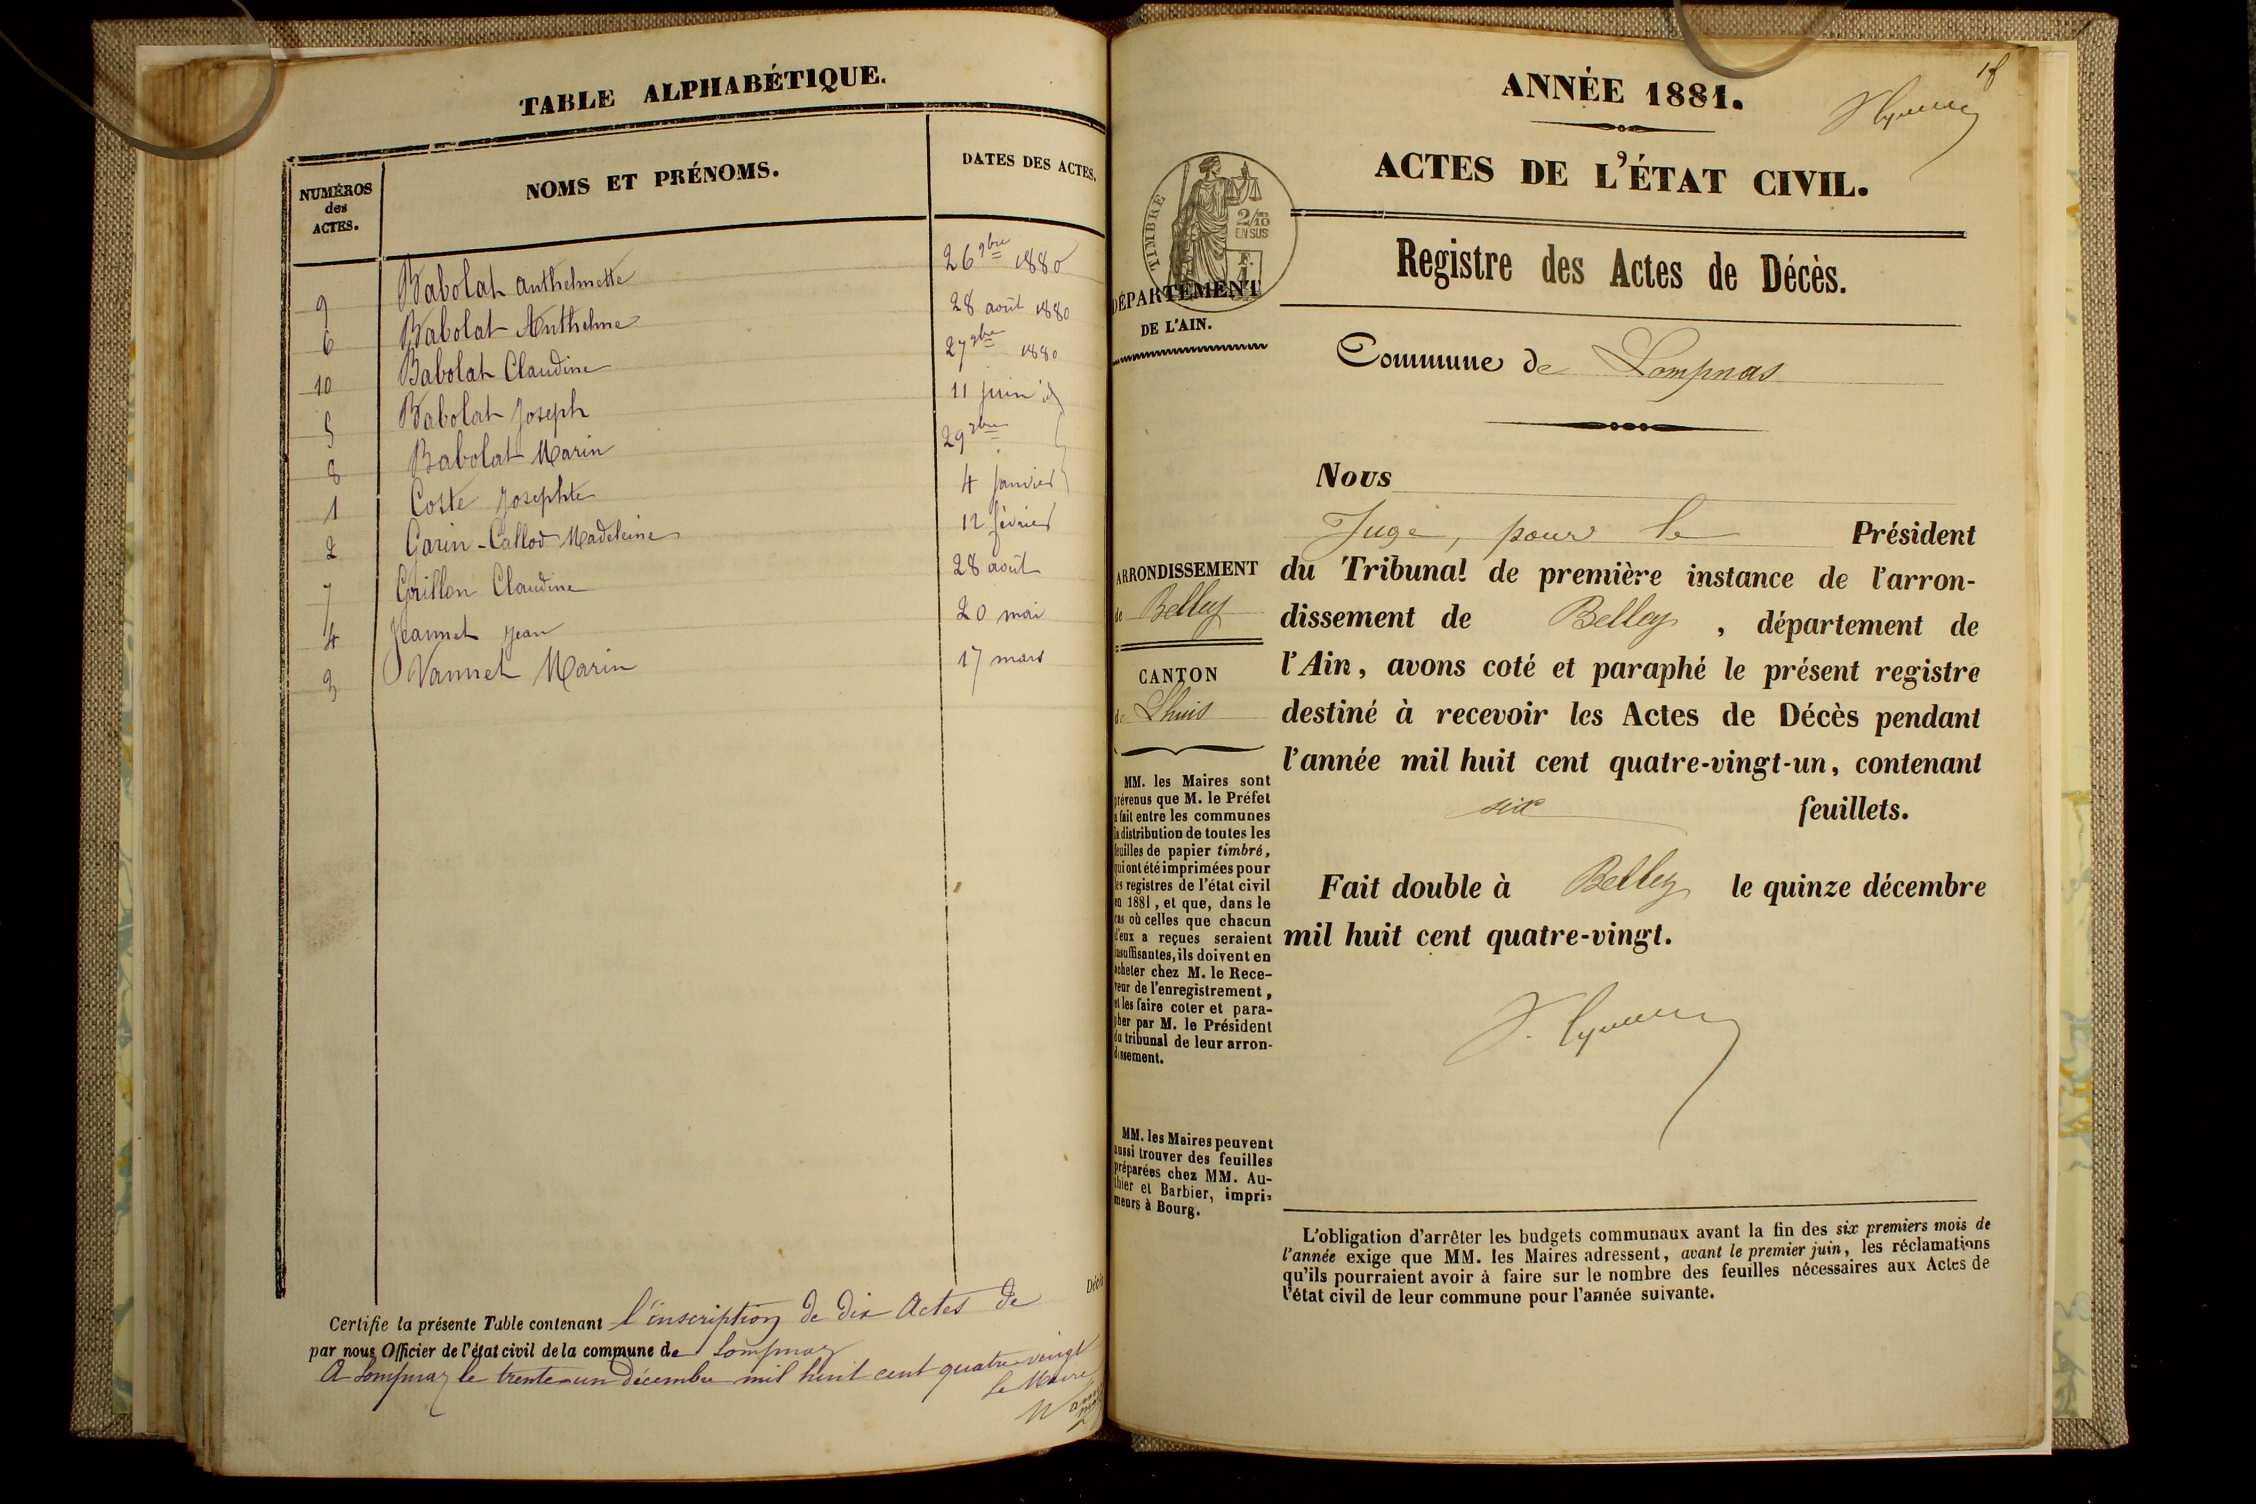 TABLE ALPHABÉTIQUE.
NUMÉROS
des
ACTES.
NOMS ET PRÉNOMS.
DATES DES ACTES.
9 Babolat Anthelmette 26 9bre 1880
6 Babolat Anthelme 28 août 1880
10 Babolat Claudine 27 1880
5 Babolat Joseph 11 juin id
8 Babolat Marin 29
1 Coste Josephte 4 Janvier
2 Garin-Callod Madeleine 12 février
7 Grillon Claudine 28 août
4 Jeannet Jean 20 mai
3 Vannet Marin 17 mars
Décès
Certifie la présente Table contenant l'inscription de dix Actes de
par nous Officier de l'état civil de la commune de Lompnaz
A Lompnaz le trente-un décembre mil huit cent quatre-vingt
Le Maire
ANNÉE 1881.
ACTES DE L'ÉTAT CIVIL.
TIMBRE
2/10
EN SUS
F.
1
Registre des Actes de Décès.
DÉPARTEMENT
DE L'AIN.
Commune de Lompnas
Nous
Juge, pour le Président
du Tribunal de première instance de l'arron-
dissement de Belley, département de
l'Ain, avons coté et paraphé le présent registre
destiné à recevoir les Actes de Décès pendant
l'année mil huit cent quatre-vingt-un, contenant
six feuillets.
Fait double à Belley le quinze décembre
mil huit cent quatre-vingt.
ARRONDISSEMENT
de Belley
CANTON
de Lhuis
MM. les Maires sont
prévenus que M. le Préfet
a fait entre les communes
la distribution de toutes les
feuilles de papier timbré,
qui ont été imprimées pour
les registres de l'état civil
en 1881, et que, dans le
cas où celles que chacun
d'eux a reçues seraient
insuffisantes, ils doivent en
acheter chez M. le Rece-
veur de l'enregistrement,
et les faire coter et para-
pher par M. le Président
du tribunal de leur arron-
dissement.
MM. les Maires peuvent
aussi trouver des feuilles
préparées chez MM. Au-
thier et Barbier, impri-
meurs à Bourg.
L'obligation d'arrêter les budgets communaux avant la fin des six premiers mois de
l'année exige que MM. les Maires adressent, avant le premier juin, les réclamations
qu'ils pourraient avoir à faire sur le nombre des feuilles nécessaires aux Actes de
l'état civil de leur commune pour l'année suivante.